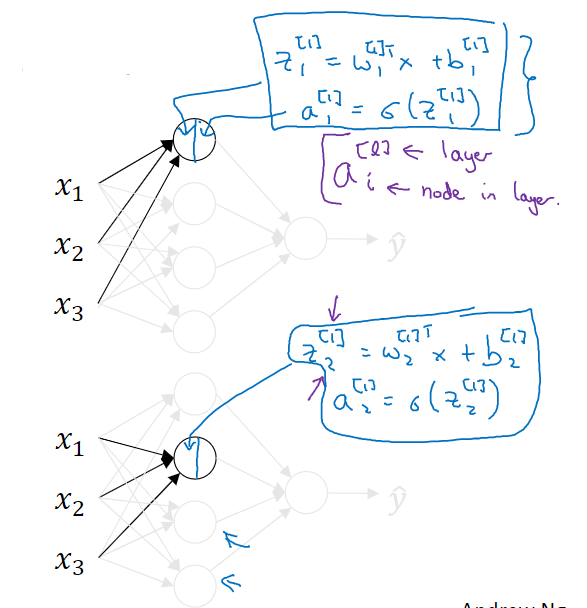 z₁^[1] = w₁^[1]T x + b₁^[1]
a₁^[1] = σ(z₁^[1])
a_i^[l] ← layer
← node in layer.
x₁
x₂
x₃
ŷ
z₂^[1] = w₂^[1]T x + b₂^[1]
a₂^[1] = σ(z₂^[1])
x₁
x₂
x₃
ŷ